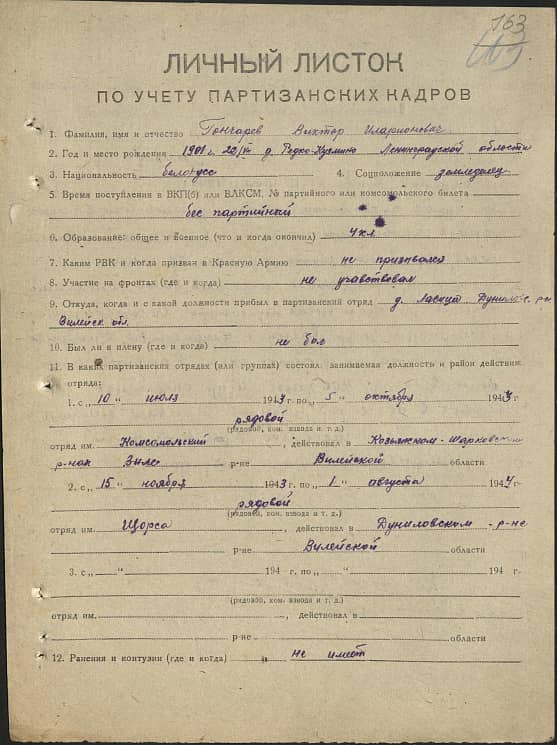 163
ЛИЧНЫЙ ЛИСТОК
ПО УЧЕТУ ПАРТИЗАНСКИХ КАДРОВ
1. Фамилия, имя и отчество Гончарев Виктор Иларионович
2. Год и место рождения 1901 г. д. Редко-Кузмино Ленинградской области
3. Национальность белорусс 4. Соцположение земледелец
5. Время поступления в ВКП(б) или ВЛКСМ, № партийного или комсомольского билета
бес партийный
6. Образование: общее и военное (что и когда окончил) 4 кл
7. Каким РВК и когда призван в Красную Армию не призвался
8. Участие на фронтах (где и когда) не учавствовал
9. Откуда, когда и с какой должности прибыл в партизанский отряд д.
Вилейск. обл.
10. Был ли в плену (где и когда) не был
11. В каких партизанских отрядах (или группах) состоял, занимаемая должность и район действия
отряда:
1. с „10“ июля 1943 г. по „5“ октября 1943 г.
рядовой
(рядовой, ком. взвода и т. д.)
отряд им. Комсомольский, действовал в Козьянском-Шарковском
р-нах р-не Вилейской области
2. с „15“ ноября 1943 г. по „1“ августа 1944 г.
рядовой
(рядовой, ком. взвода и т. д.)
отряд им. Щорса, действовал в Дуниловском р-не
р-не Вилейской области
3. с „ “ 194 г. по „ “ 194 г.
(рядовой, ком. взвода и т. д.)
отряд им. , действовал в
р-не области
12. Ранения и контузии (где и когда) не имеет